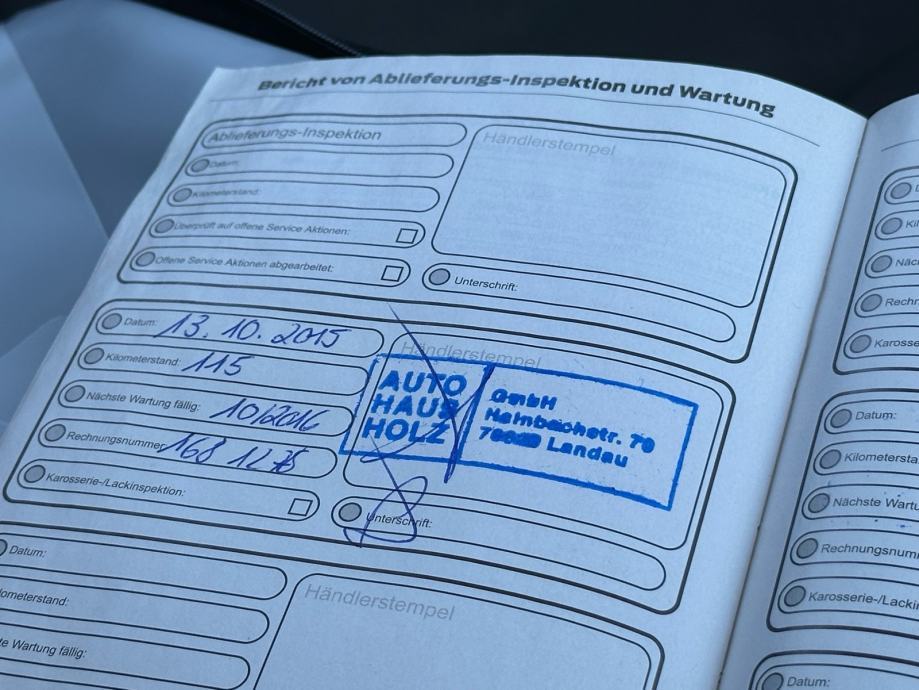 Bericht von Ablieferungs-Inspektion und Wartung
Ablieferungs-Inspektion
Datum:
Kilometerstand:
Überprüft auf offene Service Aktionen:
Offene Service Aktionen abgearbeitet:
Händlerstempel
Unterschrift:
Datum: 13.10.2015
Kilometerstand: 115
Nächste Wartung fällig: 10/2016
Rechnungsnummer
Karosserie-/Lackinspektion:
Händlerstempel
AUTO
HAUS
HOLZ
GmbH
Landau
Unterschrift:
Datum:
ometerstand:
te Wartung fällig:
Händlerstempel
Kil
Näc
Rechn
Karosse
Datum:
Kilometersta
Nächste Wartu
Rechnungsnum
Karosserie-/Lackin
Datum: